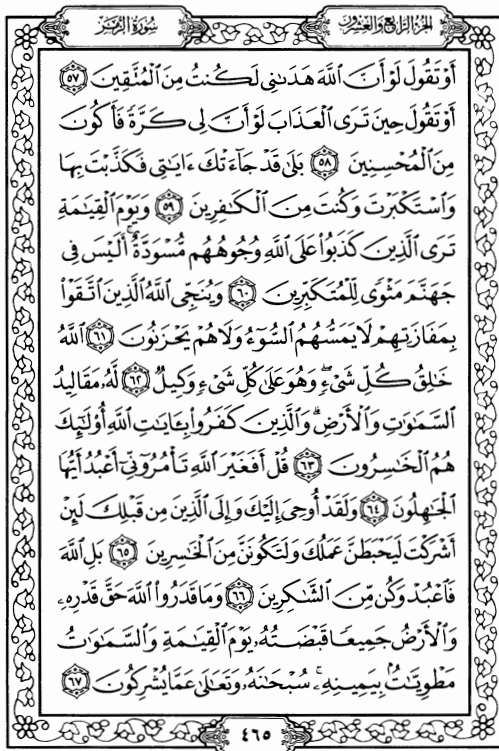 الجزء الرابع والعشرون
سورة الزمر
أَوْ تَقُولَ لَوْ أَنَّ اللَّهَ هَدَىٰنِى لَكُنتُ مِنَ الْمُتَّقِينَ ٥٧
أَوْ تَقُولَ حِينَ تَرَى الْعَذَابَ لَوْ أَنَّ لِى كَرَّةً فَأَكُونَ
مِنَ الْمُحْسِنِينَ ٥٨ بَلَىٰ قَدْ جَآءَتْكَ ءَايَٰتِى فَكَذَّبْتَ بِهَا
وَاسْتَكْبَرْتَ وَكُنتَ مِنَ الْكَٰفِرِينَ ٥٩ وَيَوْمَ الْقِيَٰمَةِ
تَرَى الَّذِينَ كَذَبُوا۟ عَلَى اللَّهِ وُجُوهُهُم مُّسْوَدَّةٌ ۚ أَلَيْسَ فِى
جَهَنَّمَ مَثْوًى لِّلْمُتَكَبِّرِينَ ٦٠ وَيُنَجِّى اللَّهُ الَّذِينَ اتَّقَوْا۟
بِمَفَازَتِهِمْ لَا يَمَسُّهُمُ السُّوٓءُ وَلَا هُمْ يَحْزَنُونَ ٦١ اللَّهُ
خَٰلِقُ كُلِّ شَىْءٍ ۖ وَهُوَ عَلَىٰ كُلِّ شَىْءٍ وَكِيلٌ ٦٢ لَّهُۥ مَقَالِيدُ
السَّمَٰوَٰتِ وَالْأَرْضِ ۗ وَالَّذِينَ كَفَرُوا۟ بِـَٔايَٰتِ اللَّهِ أُو۟لَٰٓئِكَ
هُمُ الْخَٰسِرُونَ ٦٣ قُلْ أَفَغَيْرَ اللَّهِ تَأْمُرُوٓنِّىٓ أَعْبُدُ أَيُّهَا
الْجَٰهِلُونَ ٦٤ وَلَقَدْ أُوحِىَ إِلَيْكَ وَإِلَى الَّذِينَ مِن قَبْلِكَ لَئِنْ
أَشْرَكْتَ لَيَحْبَطَنَّ عَمَلُكَ وَلَتَكُونَنَّ مِنَ الْخَٰسِرِينَ ٦٥ بَلِ اللَّهَ
فَاعْبُدْ وَكُن مِّنَ الشَّٰكِرِينَ ٦٦ وَمَا قَدَرُوا۟ اللَّهَ حَقَّ قَدْرِهِۦ
وَالْأَرْضُ جَمِيعًا قَبْضَتُهُۥ يَوْمَ الْقِيَٰمَةِ وَالسَّمَٰوَٰتُ
مَطْوِيَّٰتٌۢ بِيَمِينِهِۦ ۚ سُبْحَٰنَهُۥ وَتَعَٰلَىٰ عَمَّا يُشْرِكُونَ ٦٧
٤٦٥